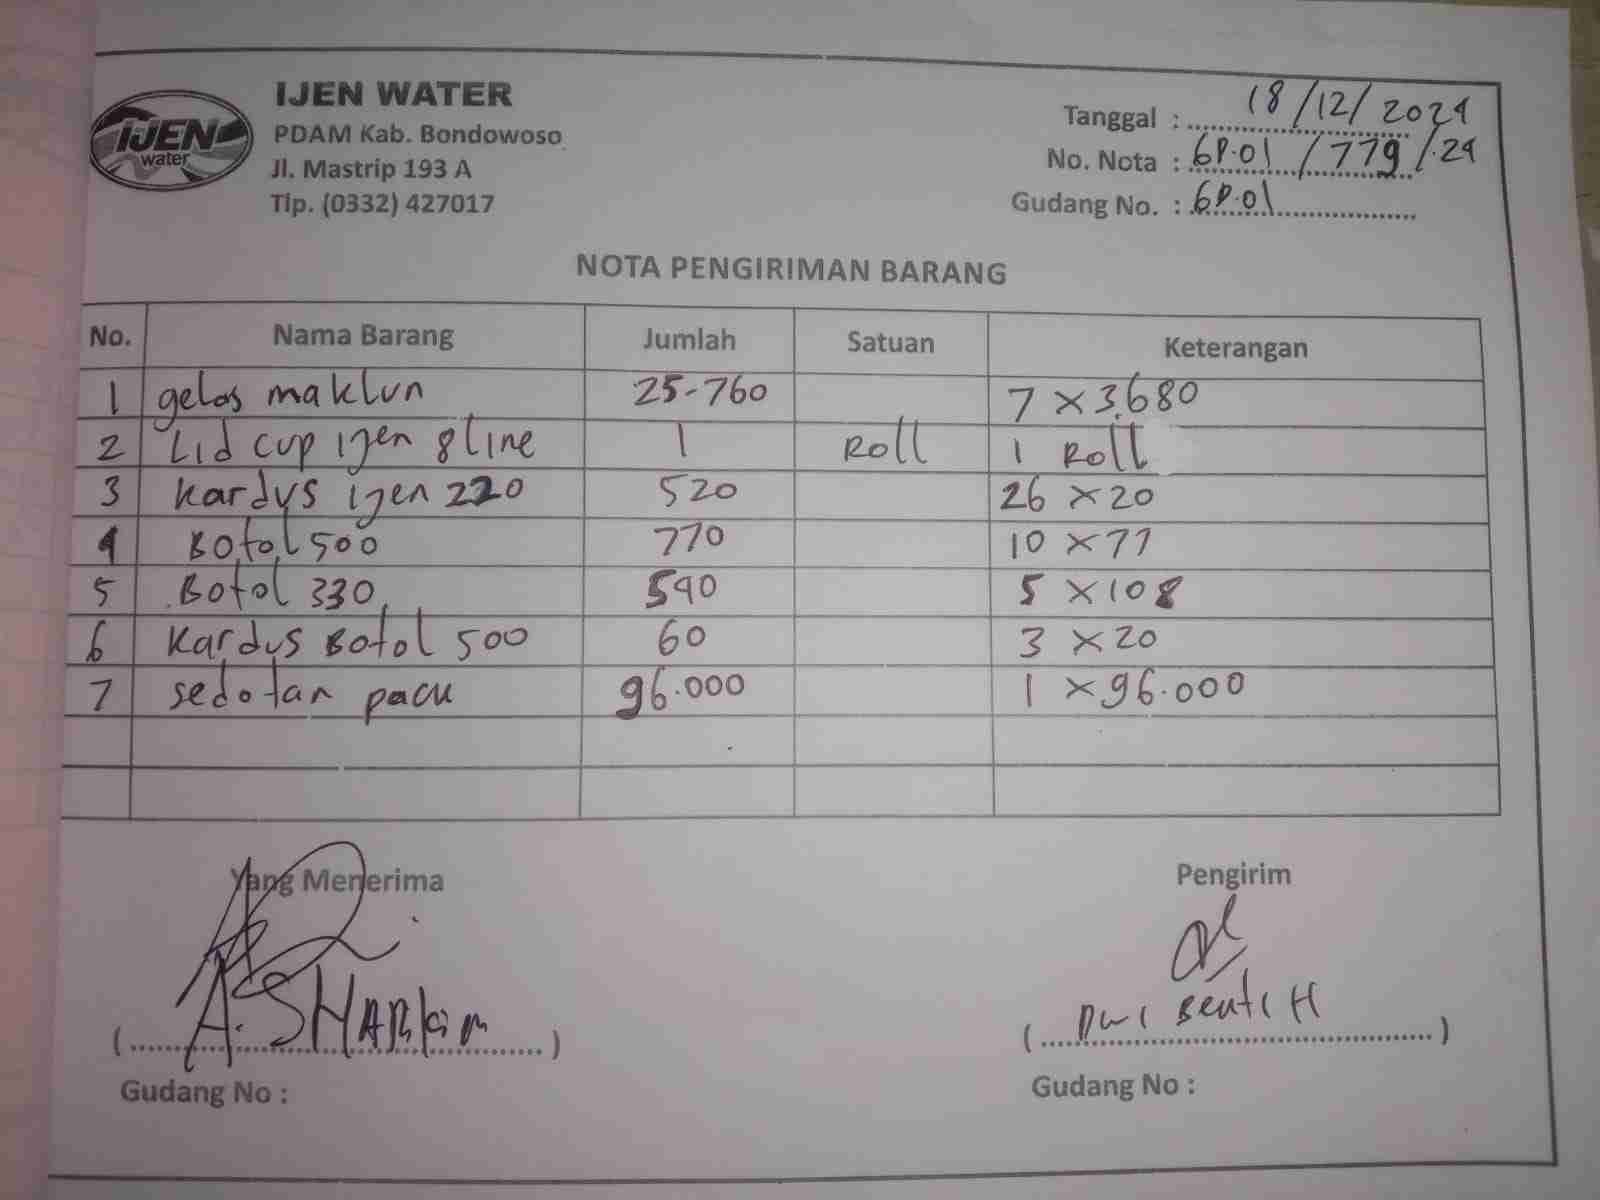 IJEN WATER
PDAM Kab. Bondowoso
Jl. Mastrip 193 A
Tlp. (0332) 427017
IJEN
water
Tanggal : 18/12/2024
No. Nota : GD.01 / 779 / .24
Gudang No. : GD.01
NOTA PENGIRIMAN BARANG
No. Nama Barang Jumlah Satuan Keterangan
1 gelas maklun 25-760 7 x 3.680
2 Lid cup ijen 8 line 1 Roll 1 Roll
3 Kardus ijen 220 520 26 x 20
4 Botol 500 770 10 x 77
5 Botol 330 540 5 x 108
6 Kardus Botol 500 60 3 x 20
7 sedotan pack 96.000 1 x 96.000
Yang Menerima Pengirim
( A. ) ( Dwi )
Gudang No : Gudang No :